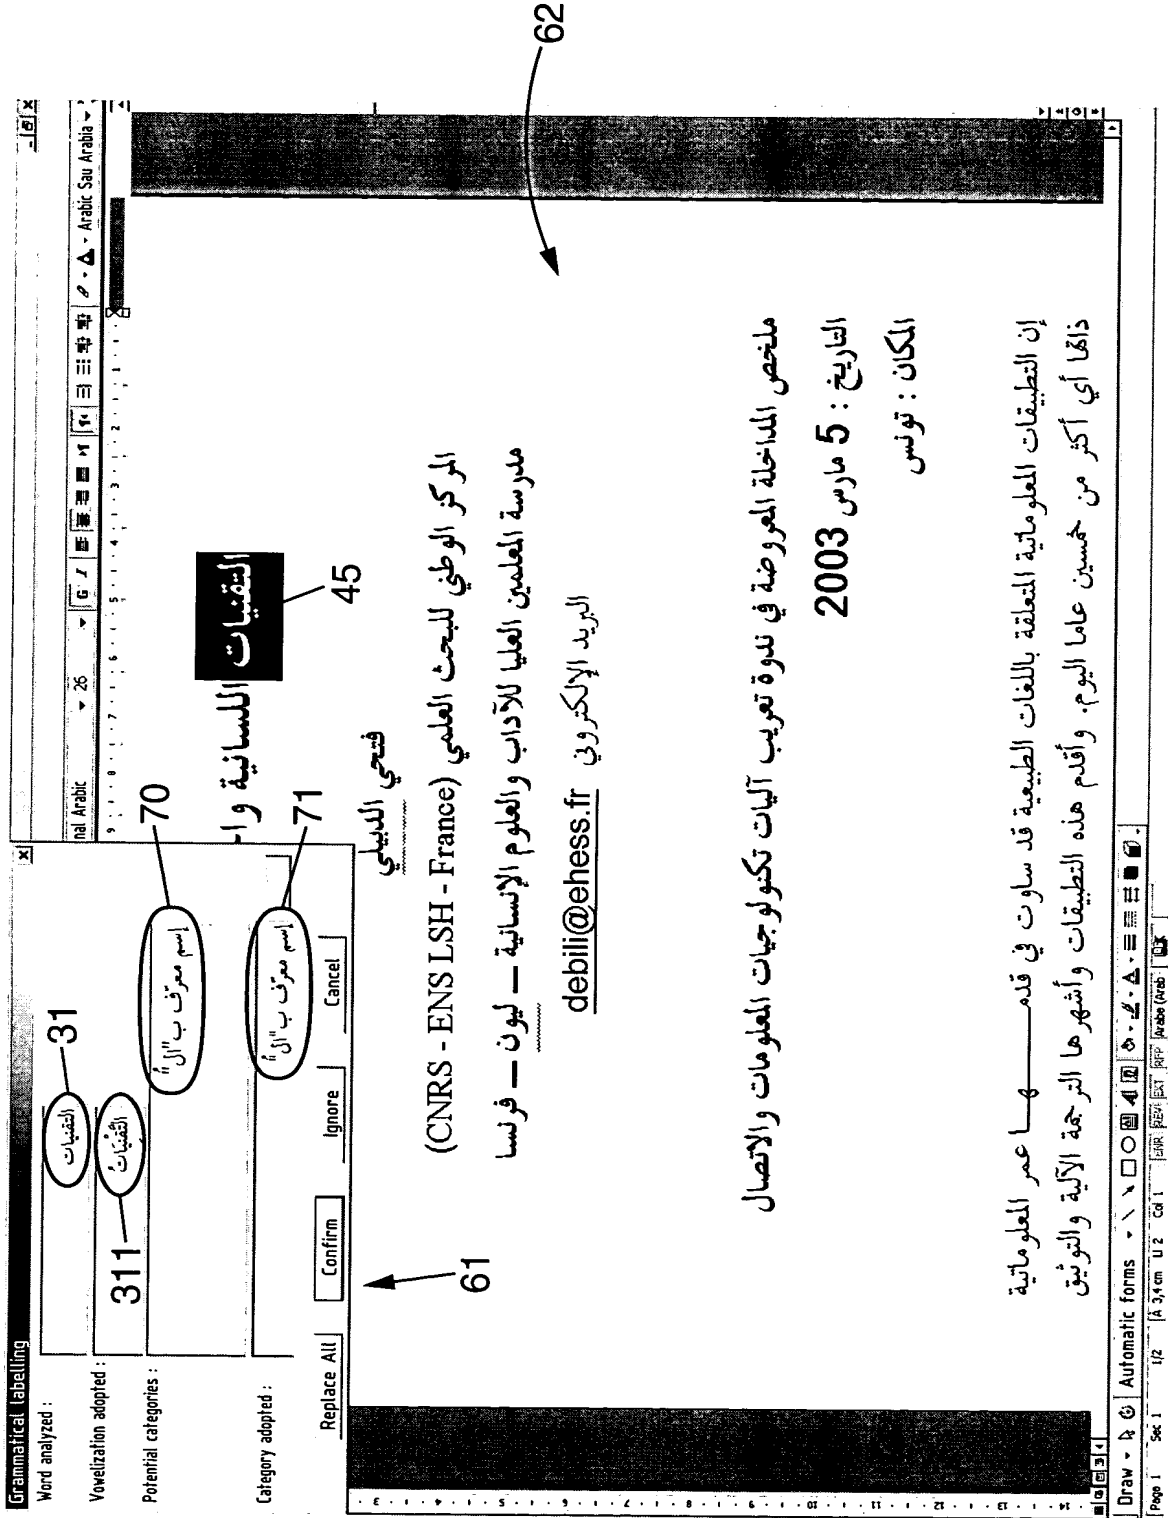 62
Grammatical labelling
Word analyzed :
التقنيات
31
Vowelization adopted :
التِّقْنِيَاتُ
311
Potential categories :
إسم معرّف ب"ال"
70
Category adopted :
إسم معرّف ب"ال"
71
Replace All
Confirm
Ignore
Cancel
61
nal Arabic
26
G I
Arabic Sau Arabia
التقنيات اللسانية وا
45
فتحي الدبيلي
المركز الوطني للبحث العلمي (CNRS - ENS LSH - France)
مدرسة المعلمين العليا للآداب والعلوم الإنسانية – ليون – فرنسا
البريد الإلكتروني debili@ehess.fr
ملخص المداخلة المعروضة في ندوة تعريب آليات تكنولوجيات المعلومات والاتصال
التاريخ : 5 مارس 2003
المكان : تونس
إن التطبيقات المعلوماتية المتعلقة باللغات الطبيعية قد ساوت في قدمـــــها عمر المعلوماتية
ذاتها أي أكثر من خمسين عاما اليوم. وأقدم هذه التطبيقات وأشهرها الترجمة الآلية والتوثيق
Draw
Automatic forms
Page 1 Sec 1 1/2 À 3,4 cm Li 2 Col 1 ENR REV EXT RFP Arabe (Arab